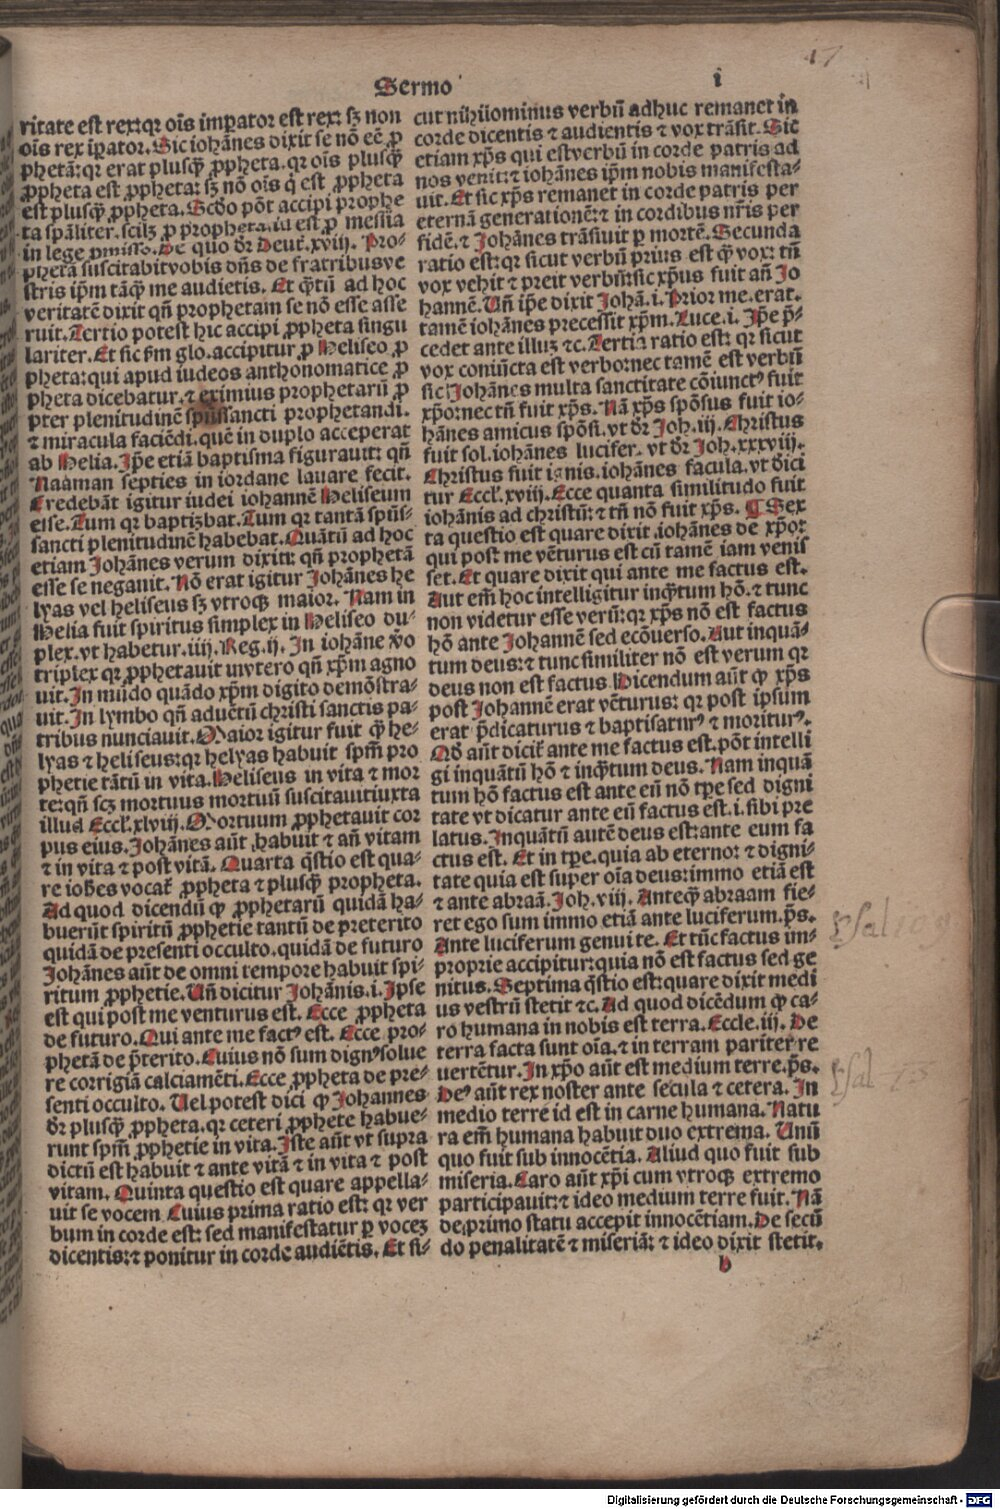 17
Sermo i
ritate est rex: qr oīs imꝑator est rex: sȝ non
oīs rex iꝑator. Sic iohānes dixit se nō eē ꝓ
phetā: qr erat plusꝙ̄ ꝓpheta. qr oīs plusꝙ̄
ꝓpheta est ꝓpheta: sȝ nō oīs q̇ est ꝓpheta
est plusꝙ̄ ꝓpheta. Scďo pōt accipi prophe
ta spāliter. scilȝ ꝓ propheta. id est ꝓ messia
in lege ꝓmisso. De quo ďr Deut̄. xviij. Pro⸗
phetā suscitabit vobis dn̄s de fratribus ve
stris ip̄m tāꝙ̄ me audietis. Et qͣ̄tū ad hoc
veritatē dixit qn̄ prophetam se nō esse asse
ruit. Tertio potest hic accipi ꝓpheta singu
lariter. Et sic ẜm glo. accipitur ꝓ Heliseo ꝓ
pheta: qui apud iudeos anthonomatice ꝓ
pheta dicebatur. ⁊ eximius prophetarū ꝓ
pter plenitudinē spūssancti prophetandi.
⁊ miracula faciēdi. quē in duplo acceperat
ab Helia. Ip̄e etiā baptisma figurauit: qn̄
Naaman septies in iordane lauare fecit.
Credebāt igitur iudei iohannē Heliseum
esse. Tum qr baptizbat. Tum qr tantā spūs⸗
sancti plenitudinē habebat. Quātū ad hoc
etiam Johānes verum dixit: qn̄ prophetā
esse se negauit. Nō erat igitur Johānes he
lyas vel heliseus sȝ vtroqꝫ maior. Nam in
Helia fuit spiritus simplex in Heliseo du⸗
plex. vt habetur. iiij. Reg. ij. In iohāne v̄o
triplex qr ꝓphetauit in vtero qn̄ xp̄m agno
uit. In mūdo quādo xp̄m digito demōstra⸗
uit. In lymbo qn̄ aduētū christi sanctis pa⸗
tribus nunciauit. Maior igitur fuit ꝙ̄ he⸗
lyas ⁊ heliseus: qr helyas habuit spm̄ pro
phetie tātū in vita. Heliseus in vita ⁊ mor
te: qn̄ scȝ mortuus mortuū suscitauit iuxta
illud Eccl̄. xlviij. Mortuum ꝓphetauit cor
pus eius. Johānes aūt habuit ⁊ an̄ vitam
⁊ in vita ⁊ post vitā. Quarta q̄stio est qua⸗
re ioh̄es vocat̄ ꝓpheta ⁊ plusꝙ̄ propheta.
Ad quod dicendū ꝙ ꝓphetarū quidā ha⸗
buerūt spiritū ꝓphetie tantū de preterito
quidā de presenti occulto. quidā de futuro
Johānes aūt de omni tempore habuit spi⸗
ritum ꝓphetie. Un̄ dicitur Johānis. i. Ipse
est qui post me venturus est. Ecce ꝓpheta
de futuro. Qui ante me factꝰ est. Ecce pro⸗
phetā de p̄terito. Cuius nō sum dignꝰ solue
re corrigiā calciamēti. Ecce ꝓpheta de pre⸗
senti occulto. Uel potest dici ꝙ Johannes
ďr plusꝙ̄ ꝓpheta. qr ceteri ꝓphete habue⸗
runt spm̄ ꝓphetie in vita. Iste aūt vt supra
dictū est habuit ⁊ ante vitā ⁊ in vita ⁊ post
vitam. Quinta questio est quare appella⸗
uit se vocem Cuius prima ratio est: qr ver
bum in corde est: sed manifestatur ꝑ voceȝ
dicentis: ⁊ ponitur in corde audiētis. Et si⸗
cut nihilominus verbū adhuc remanet in
corde dicentis ⁊ audientis ⁊ vox trāsit. Sic
etiam xp̄s qui est verbū in corde patris ad
nos venit: ⁊ iohānes ip̄m nobis manifesta⸗
uit. Et sic xp̄s remanet in corde patris per
eternā generationē: ⁊ in cordibus nr̄is per
fidē. ⁊ Johānes trāsiuit ꝑ mortē. Secunda
ratio est: qr sicut verbū prius est ꝙ̄ vox: tn̄
vox vehit ⁊ preit verbū: sic xp̄us fuit an̄ Jo
hannē. Un̄ ip̄e dixit Johā. i. Prior me. erat.
tamē iohānes precessit xp̄m. Luce. i. Ip̄e p̄⸗
cedet ante illuȝ ⁊c. Tertia ratio est: qr sicut
vox coniūcta est verbo: nec tamē est verbū
sic Johānes multa sanctitate cōiunctꝰ fuit
xp̄o: nec tn̄ fuit xp̄s. Nā xp̄s spōsus fuit io⸗
hānes amicus spōsi. vt ďr Joh. iij. Christus
fuit sol. iohānes lucifer. vt ďr Job. xxxviij.
Christus fuit ignis. iohānes facula. vt dici
tur Eccl̄. xviij. Ecce quanta similitudo fuit
iohānis ad christū: ⁊ tn̄ nō fuit xp̄s. ¶ Sex
ta questio est quare dixit iohānes de xp̄o:
qui post me vēturus est cū tamē iam venis
set. Et quare dixit qui ante me factus est.
Aut em̄ hoc intelligitur inqͣ̄tum hō. ⁊ tunc
non videtur esse verū: qr xp̄s nō est factus
hō ante Johannē sed ecōuerso. Aut inquā⸗
tum deus: ⁊ tunc similiter nō est verum qr
deus non est factus Dicendum aūt ꝙ xp̄s
post Johannē erat vēturus: qr post ipsum
erat p̄dicaturus ⁊ baptisaturꝰ ⁊ moriturꝰ.
Qď aūt dicit̄ ante me factus est. pōt intelli
gi inquātū hō ⁊ inqͣ̄tum deus. Nam inquā
tum hō factus est ante eū nō tꝑe sed digni
tate vt dicatur ante eū factus est. i. sibi pre
latus. Inquātū autē deus est: ante eum fa
ctus est. Et in tꝑe. quia ab eterno: ⁊ digni⸗
tate quia est super oīa deus: immo etiā est
⁊ ante abraā. Joh. viij. Anteꝙ̄ abraam fie⸗
ret ego sum immo etiā ante luciferum. p̄s.
Ante luciferum genui te. Et tūc factus im⸗
proprie accipitur: quia nō est factus sed ge
nitus. Septima q̄stio est: quare dixit medi
us vestrū stetit ⁊c. Ad quod dicēdum ꝙ ca⸗
ro humana in nobis est terra. Eccle. iij. De
terra facta sunt oīa. ⁊ in terram pariter re
uertētur. In xp̄o aūt est medium terre. p̄s.
Deꝰ aūt rex noster ante secula ⁊ cetera. In
medio terre id est in carne humana. Natu
ra em̄ humana habuit duo extrema. Unū
quo fuit sub innocētia. Aliud quo fuit sub
miseria. Caro aūt xp̄i cum vtroqꝫ extremo
participauit: ⁊ ideo medium terre fuit. Nā
de primo statu accepit innocētiam. De secū
do penalitatē ⁊ miseriā: ⁊ ideo dixit stetit.
b
Digitalisierung gefördert durch die Deutsche Forschungsgemeinschaft - DFG